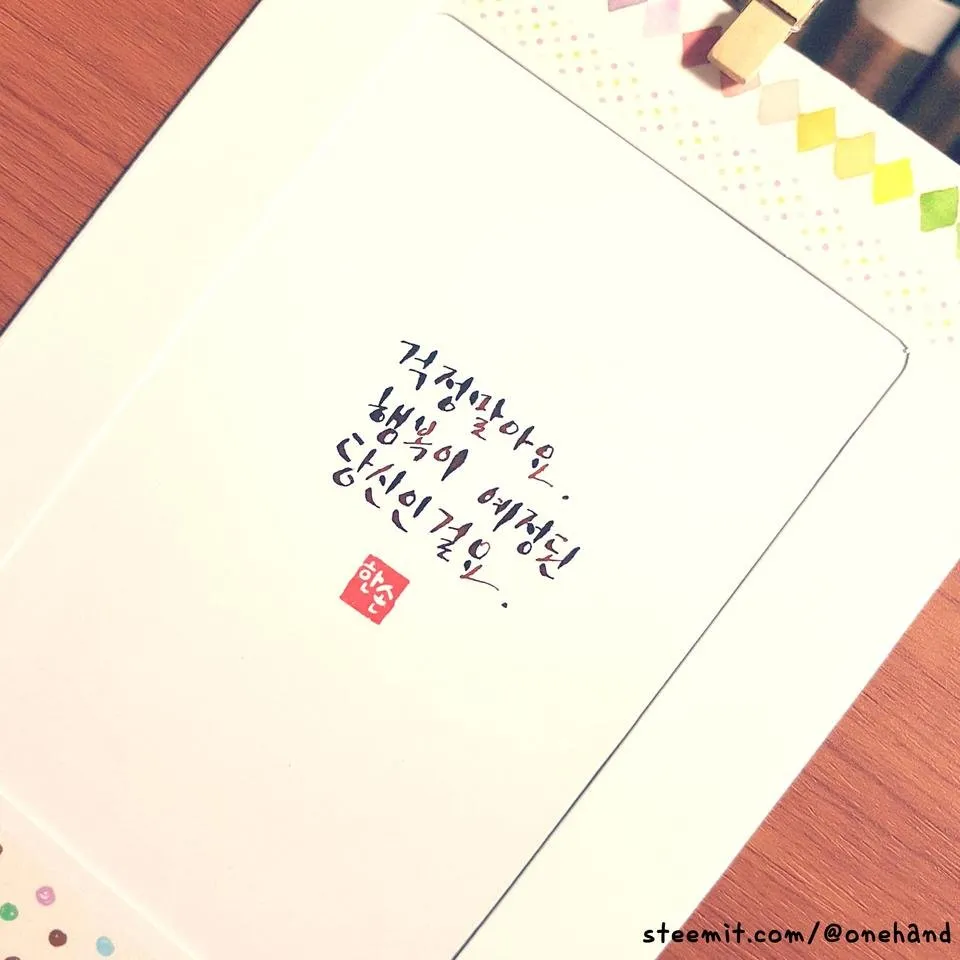 걱정말아요.
행복이 예정된
당신인걸요.
한손
steemit.com/@onehand